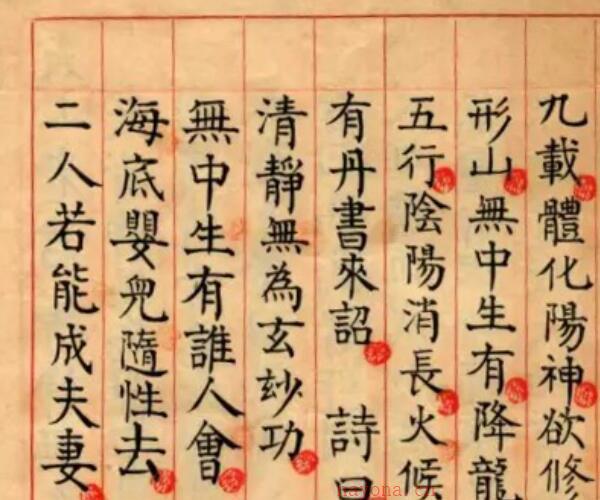 九載體化陽神欲修
形山無中生有降龍
五行陰陽消長火候
有丹書來詔 詩曰
清靜無為玄妙功
無中生有誰人會
海底嬰兒隨性去
二人若能成夫妻